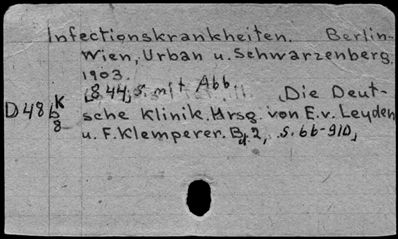 Infectionskrankheiten. Berlin-
Wien, Urban u. Schwarzenberg.
1903.
844, S. mit Abb. Die Deut-
D486 K sche Klinik. Hrsg. von E. v. Leyden
8 u. F. Klemperer. Bd. 2, S. 66-910,